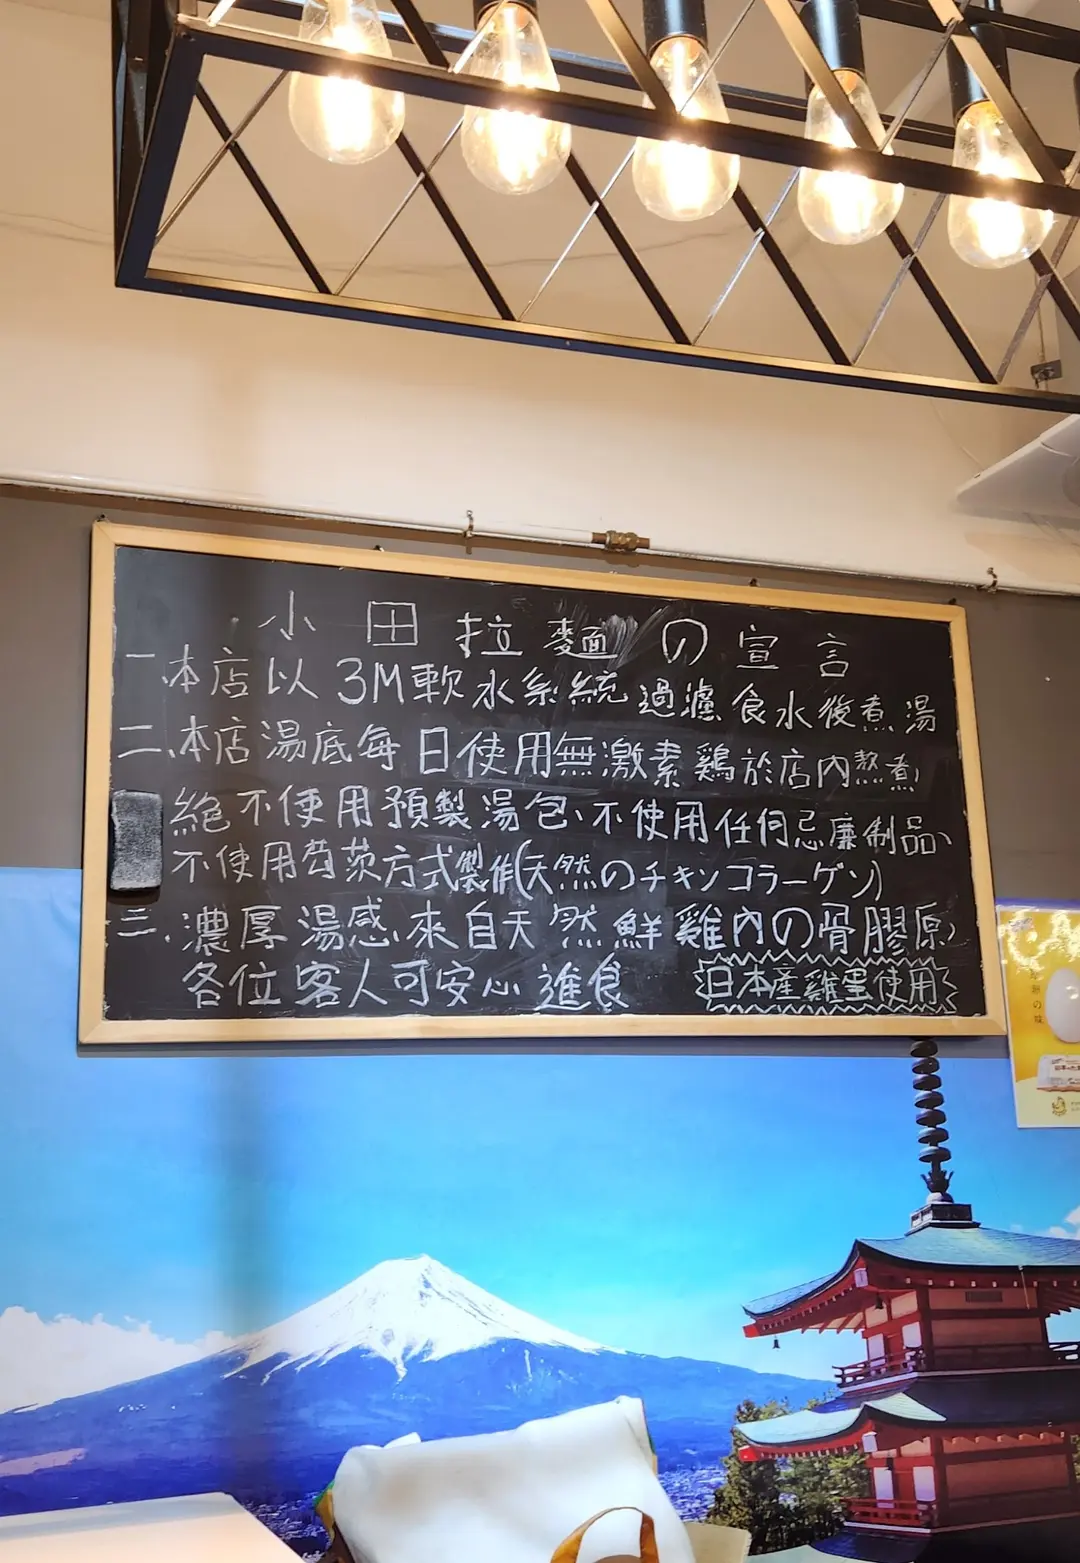 小田拉麵の宣言
一、本店以3M軟水系統過濾食水後煮湯
二、本店湯底每日使用無激素鷄於店內熬煮
絕不使用預製湯包、不使用任何忌廉制品、
不使用芶茨方式製作(天然のチキンコラーゲン)
三、濃厚湯感、來自天然鮮雞內の骨膠原)
各位客人可安心進食
日本產雞蛋使用